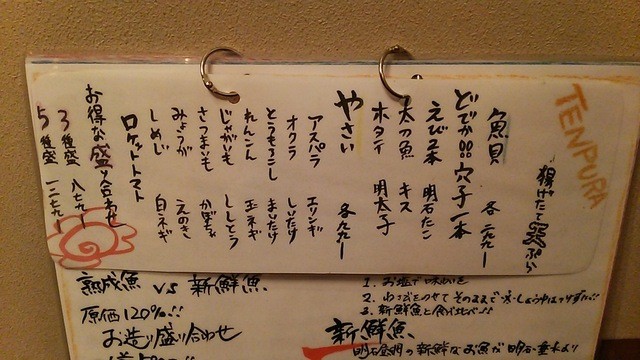 TENPURA
揚げたて天ぷら
魚貝 各二九九一
どでか!!!穴子一本
えび2本 明石たこ
太刀魚 キス
ホタテ 明太子
やさい 各九九一
アスパラ エリンギ
オクラ しいたけ
とうもろこし まいたけ
れんこん 玉ネギ
じゃがいも ししとう
さつまいも かぼちゃ
みょうが えのき
しめじ 白ネギ
ロケットトマト
お得な盛り合わせ
3種盛 八七九一
5種盛 一二七九一
熟成魚 vs 新鮮魚
原価120%!!
お造り盛り合わせ
1. お塩で味わいを
3. 新鮮魚と食べ比べ!!
新鮮魚